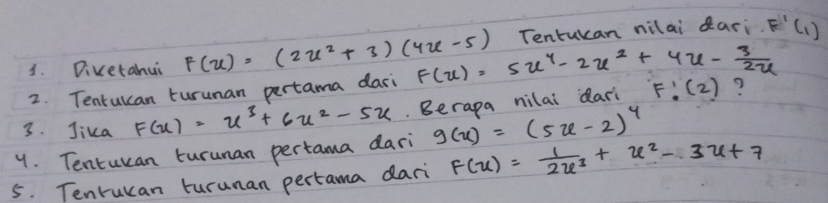 1. Diketahui F(x) = (2x² + 3) (4x - 5) Tentukan nilai dari F'(1)
2. Tentukan turunan pertama dari F(x) = 5x⁴ - 2x² + 4x - 3/2x
3. Jika F(x) = x³ + 6x² - 5x. Berapa nilai dari F'(2) ?
4. Tentukan turunan pertama dari g(x) = (5x - 2)⁴
5. Tentukan turunan pertama dari F(x) = 1/2x³ + x² - 3x + 7